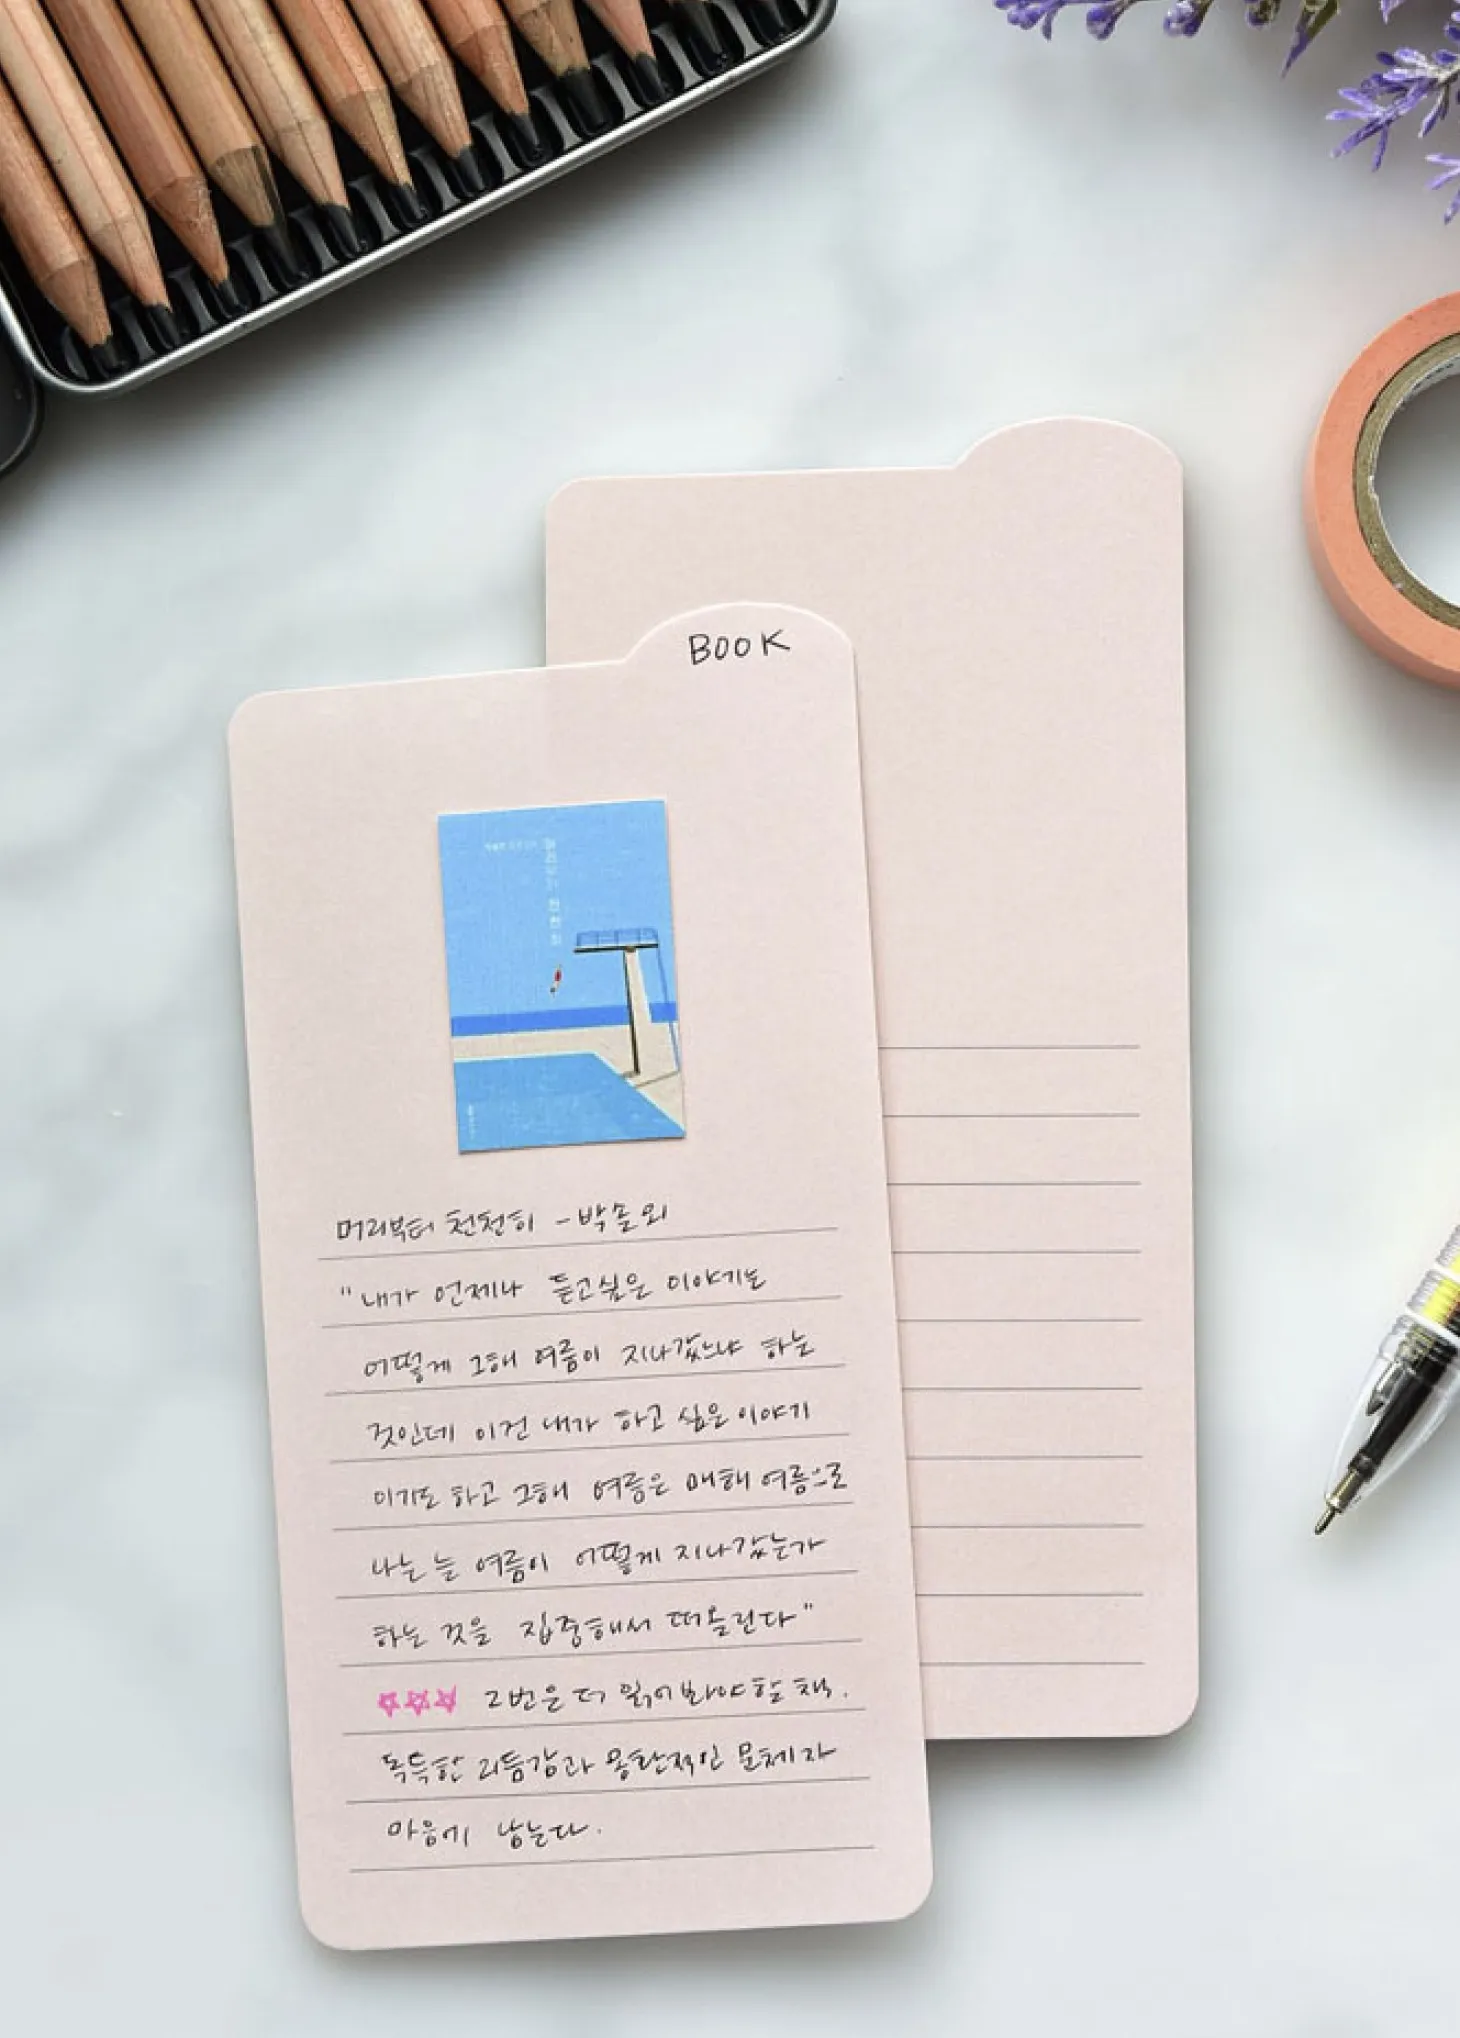 BOOK
머리부터 천천히
머리부터 천천히 - 박솔뫼
"내가 언제나 듣고싶은 이야기는
어떻게 그해 여름이 지나갔느냐 하는
것인데 이건 내가 하고 싶은 이야기
이기도 하고 그해 여름은 매해 여름으로
나는 늘 여름이 어떻게 지나갔는가
하는 것을 집중해서 떠올린다"
☆☆☆ 2번은 더 읽어봐야할 책.
독특한 리듬감과 몽환적인 문체가
마음에 남는다.